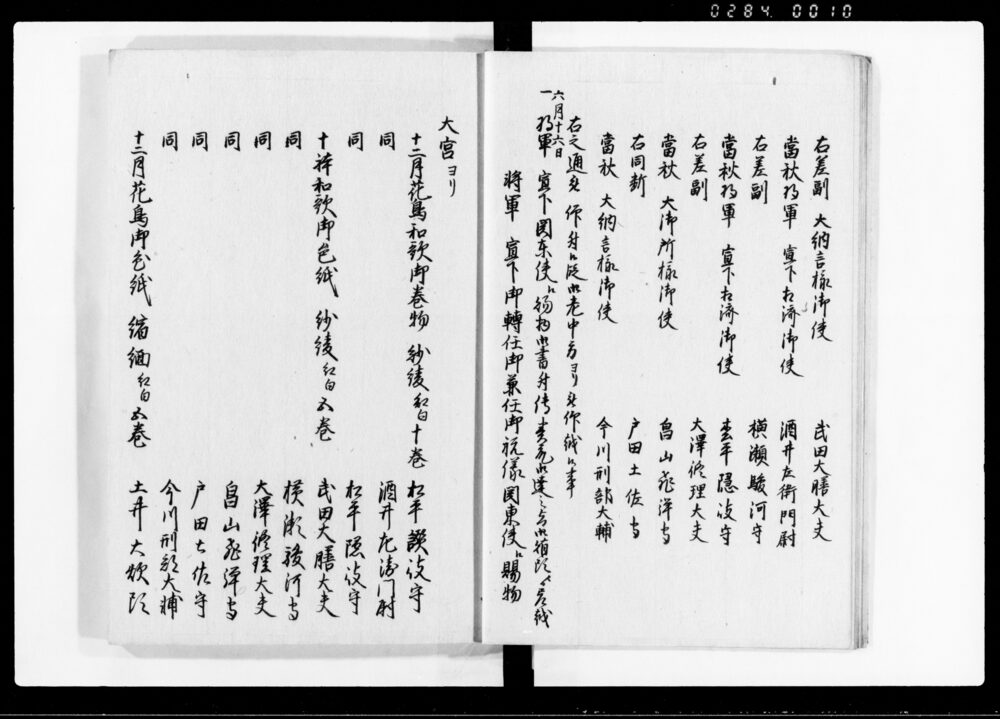 0284 0010
右差副 大納言様御使 武田大膳大夫
當秋将軍 宣下相済御使 酒井左衛門尉
右差副 横瀬駿河守
當秋将軍 宣下相済御使 松平隠岐守
右差副 大澤修理大夫
當秋 大御所様御使 畠山飛洋守
右同断 戸田土佐守
當秋 大納言様御使 今川刑部大輔
右之通被 仰付候段御老中方ヨリ被仰越候事
六月十六日
一 将軍 宣下関東使江賜物御書付伝
将軍 宣下御轉任御兼任御祝儀関東使江賜物
大宮ヨリ
十二月花鳥和歌御巻物 紗綾紅白十巻 松平讃岐守
同 酒井左衛門尉
同 松平隠岐守
十躰和歌御色紙 紗綾紅白五巻 武田大膳大夫
同 横瀬駿河守
同 大澤修理大夫
同 畠山飛洋守
同 戸田土佐守
同 今川刑部大輔
十二月花鳥御色紙 縮緬紅白五巻 土井大炊頭